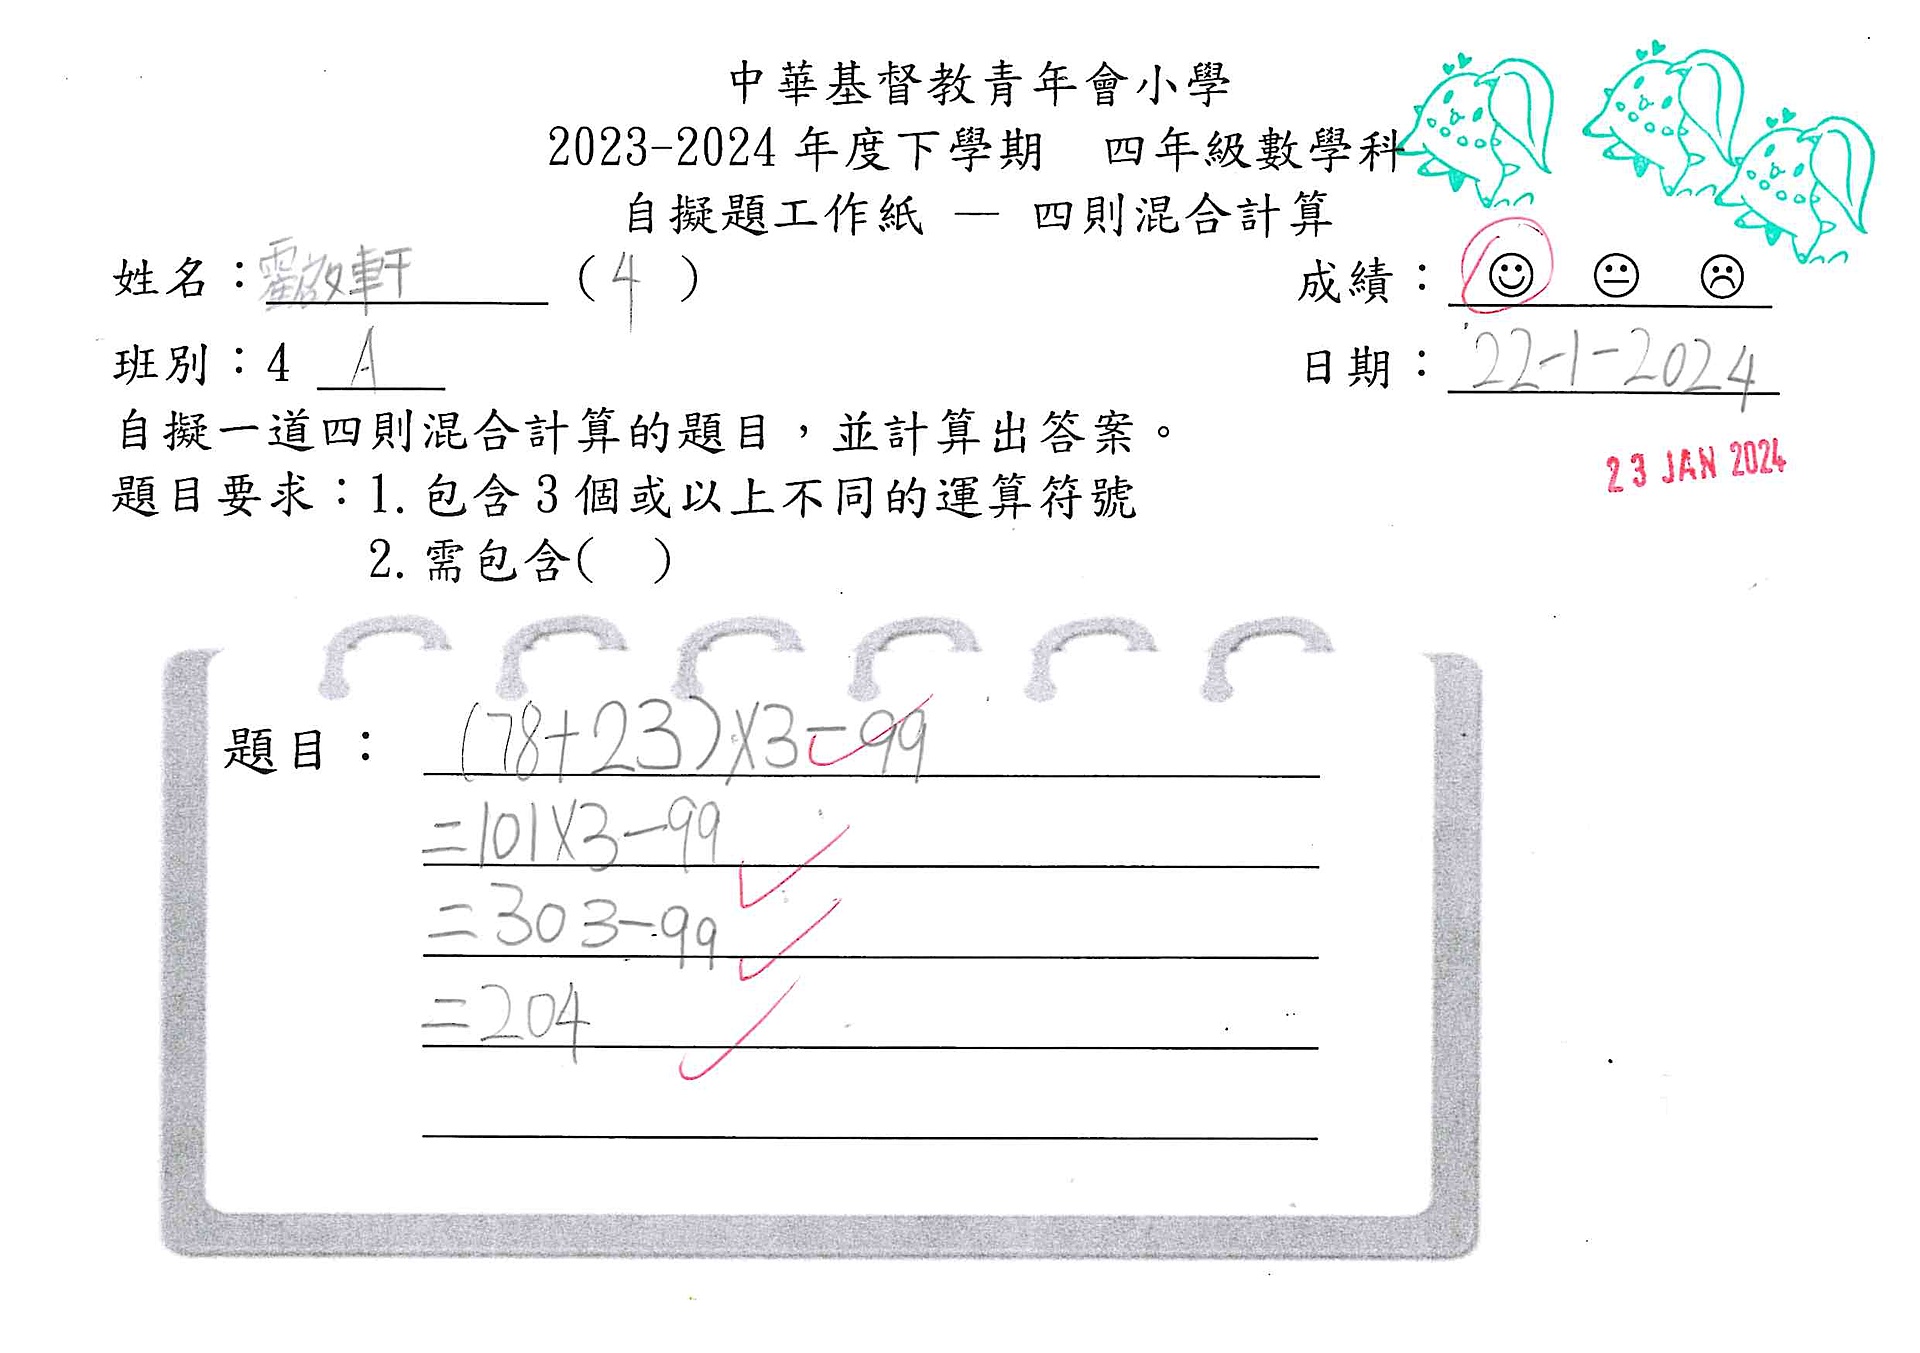 中華基督教青年會小學
2023-2024 年度下學期 四年級數學科
自擬題工作紙 — 四則混合計算
姓名：霍啟軒 ( 4 ) 成績：☺ 😐 ☹
班別：4 A 日期：22-1-2024
自擬一道四則混合計算的題目，並計算出答案。
23 JAN 2024
題目要求：1. 包含 3 個或以上不同的運算符號
2. 需包含( )
題目： (78+23)×3-99
=101×3-99
=303-99
=204